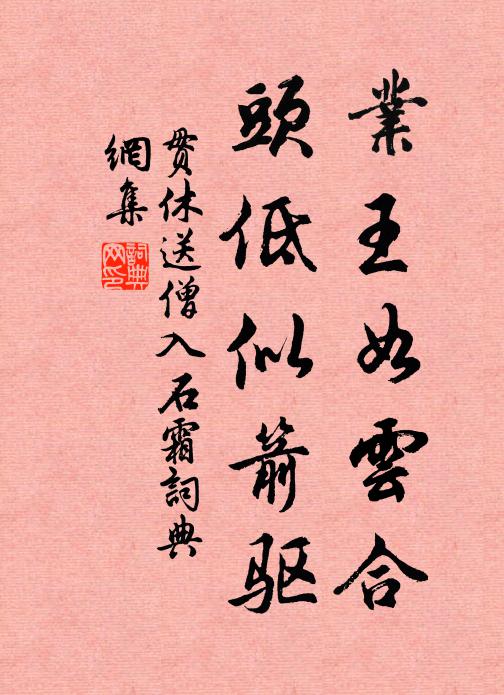 業王如雲合
頭低似箭驱
贯休送僧入石霜詞典
網集
詞典
网印